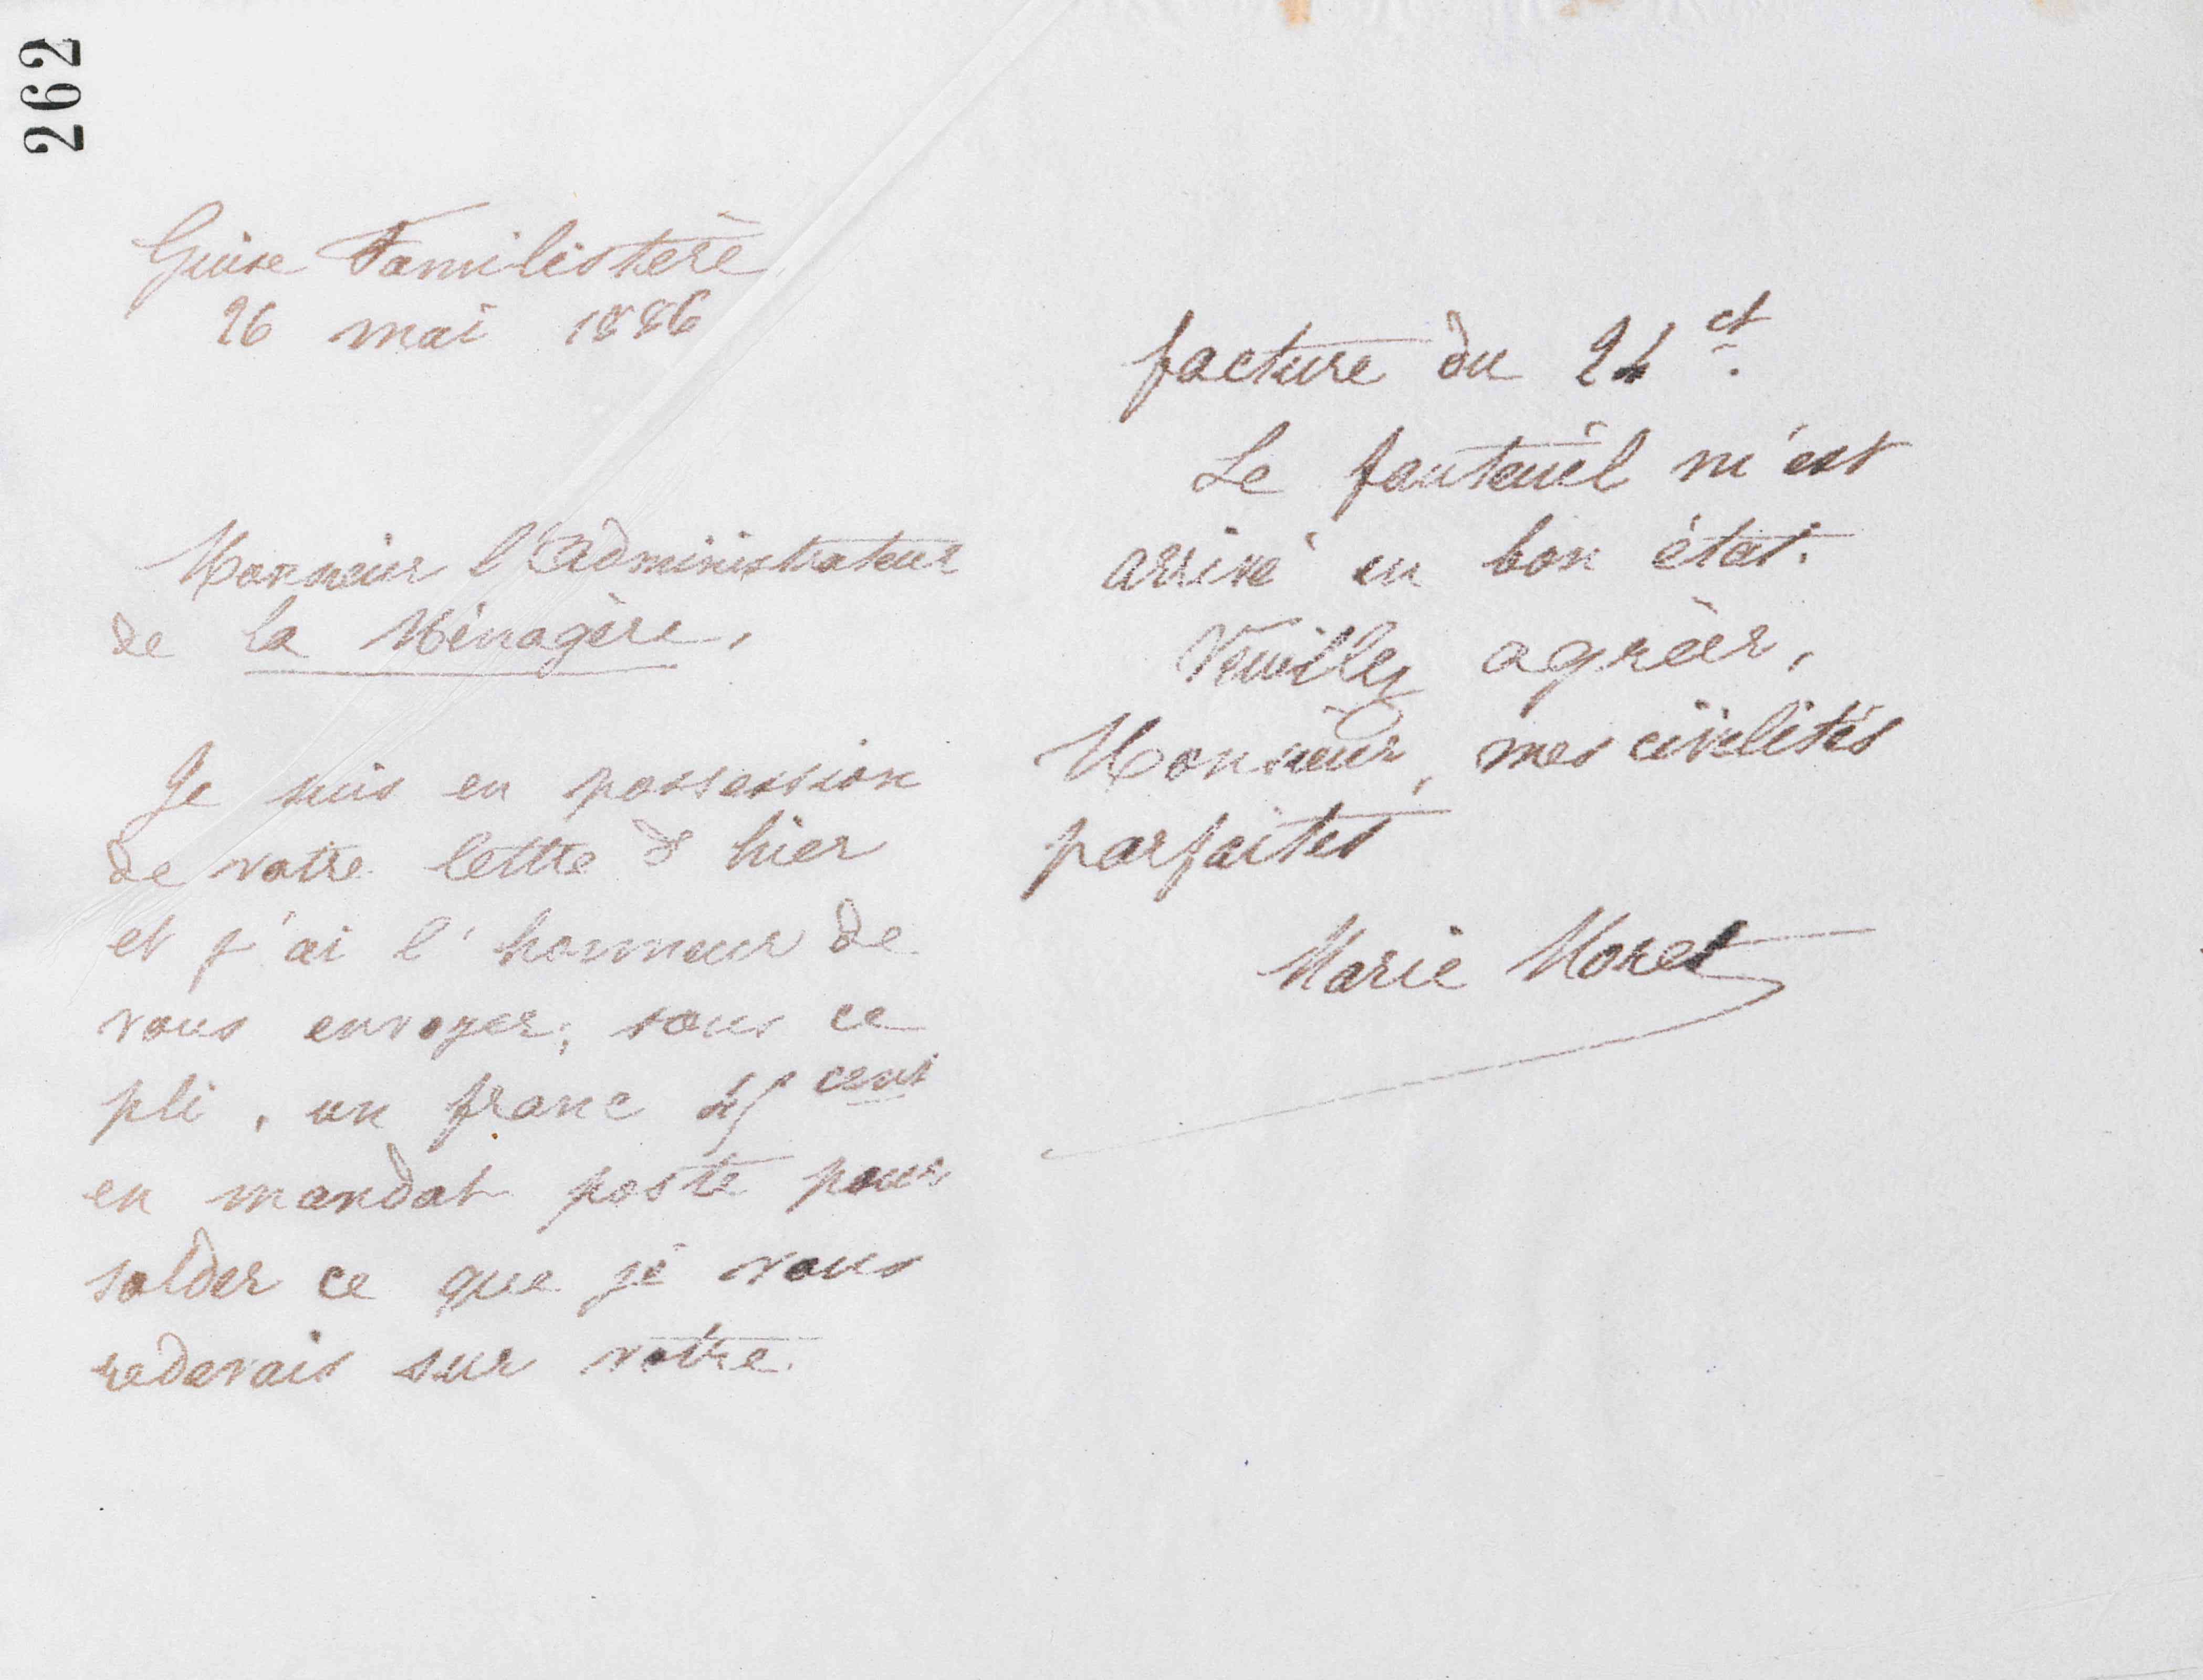 262
Guise Familistère
26 mai 1886
Monsieur l'administrateur
de la Ménagère,
Je suis en possession
de votre lettre d'hier
et j'ai l'honneur de
vous envoyer, sous ce
pli, un franc 45 cent
en mandat poste pour
solder ce que je vous
redevais sur votre
facture du 24 ct.
Le fauteuil m'est
arrivé en bon état.
Veuillez agréer,
Monsieur, mes civilités
parfaites
Marie Moret